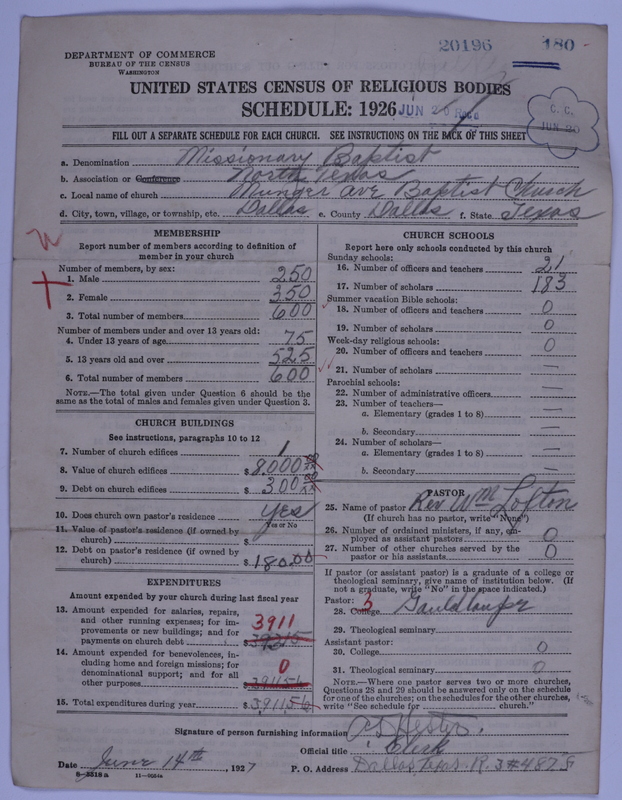 20196 180
DEPARTMENT OF COMMERCE
BUREAU OF THE CENSUS
WASHINGTON
UNITED STATES CENSUS OF RELIGIOUS BODIES
SCHEDULE: 1926
JUN 20 Rec'd
C. C.
JUN 20
FILL OUT A SEPARATE SCHEDULE FOR EACH CHURCH. SEE INSTRUCTIONS ON THE BACK OF THIS SHEET
a. Denomination Missionary Baptist
b. Association or Conference North Texas
c. Local name of church Munger Ave Baptist Church
d. City, town, village, or township, etc. Dallas e. County Dallas f. State Texas
MEMBERSHIP
Report number of members according to definition of
member in your church
Number of members, by sex:
1. Male 250
2. Female 350
3. Total number of members 600
Number of members under and over 13 years old:
4. Under 13 years of age 75
5. 13 years old and over 525
6. Total number of members 600
NOTE.—The total given under Question 6 should be the
same as the total of males and females given under Question 3.
CHURCH BUILDINGS
See instructions, paragraphs 10 to 12
7. Number of church edifices 1
8. Value of church edifices $ 8,000
9. Debt on church edifices $ 300
10. Does church own pastor's residence yes
Yes or No
11. Value of pastor's residence (if owned by
church) $
12. Debt on pastor's residence (if owned by
church) $ 180.00
EXPENDITURES
Amount expended by your church during last fiscal year
13. Amount expended for salaries, repairs,
and other running expenses; for im-
provements or new buildings; and for
payments on church debt $ 3911
14. Amount expended for benevolences, in-
cluding home and foreign missions; for
denominational support; and for all
other purposes 0 $ 391156
15. Total expenditures during year $ 391156
CHURCH SCHOOLS
Report here only schools conducted by this church
Sunday schools:
16. Number of officers and teachers 21
17. Number of scholars 183
Summer vacation Bible schools:
18. Number of officers and teachers 0
19. Number of scholars 0
Week-day religious schools:
20. Number of officers and teachers 0
21. Number of scholars —
Parochial schools:
22. Number of administrative officers —
23. Number of teachers—
a. Elementary (grades 1 to 8) —
b. Secondary —
24. Number of scholars—
a. Elementary (grades 1 to 8) —
b. Secondary —
PASTOR
25. Name of pastor Rev. Wm Lofton
(If church has no pastor, write "None")
26. Number of ordained ministers, if any, em-
ployed as assistant pastors 0
27. Number of other churches served by the
pastor or his assistants 0
If pastor (or assistant pastor) is a graduate of a college or
theological seminary, give name of institution below. (If
not a graduate, write "No" in the space indicated.)
Pastor: 3
28. College
29. Theological seminary
Assistant pastor:
30. College 0
31. Theological seminary 0
NOTE.—Where one pastor serves two or more churches,
Questions 28 and 29 should be answered only on the schedule
for one of the churches; on the schedules for the other churches,
write "See schedule for church."
Signature of person furnishing information
Official title Clerk
Date June 14th, 1927 P. O. Address Dallas, Texas. R. 3 # 487
8—5518 a